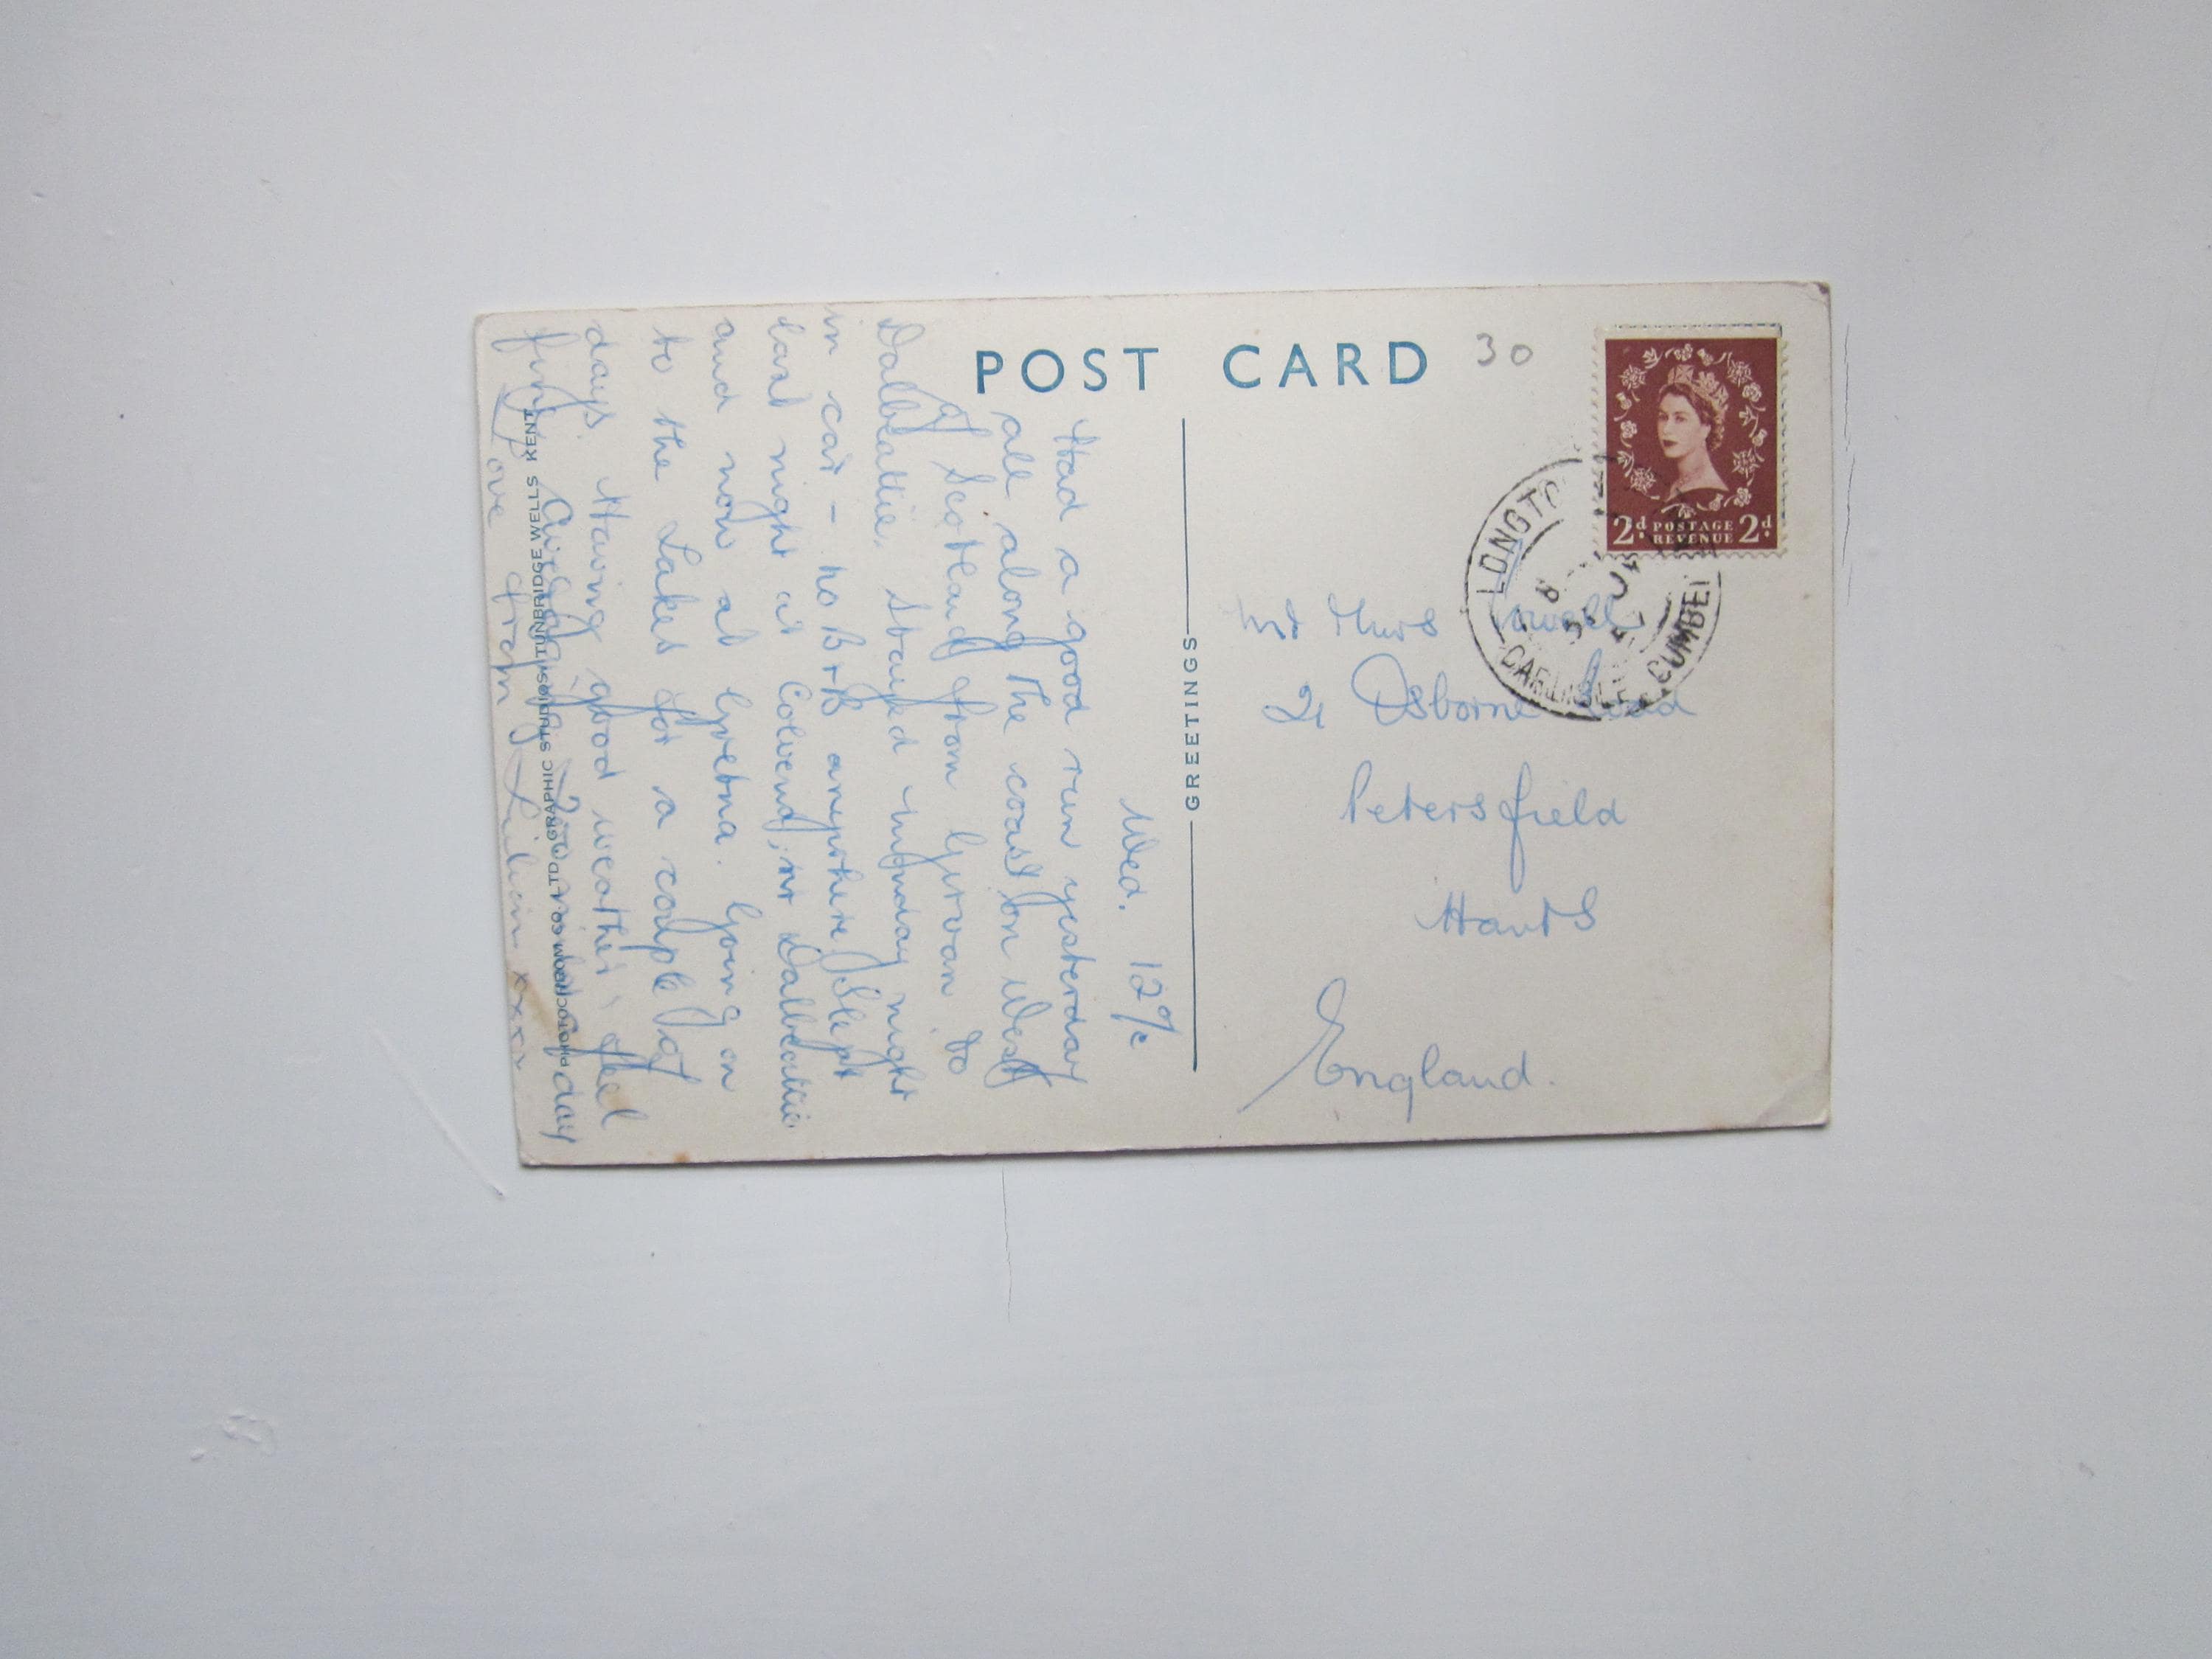 POST CARD
30
2d POSTAGE 2d
REVENUE
LONGTO
CARLISLE CUMBE
GREETINGS
Osborne Road
Petersfield
Hants
England.
Wed. 12 o/c
Had a good run yesterday
all along the coast on West
of Scotland from Girvan to
Dalbeattie. Stayed Monday night
in car - no B+B anywhere Slept
last night at Colvend, nr Dalbeattie
and now at Gretna. Going on
to the Lakes for a couple of
days. Having good weather, feel
fine. day
Love from Lilian xxxx
PHOTOCHROM CO. LTD GRAPHIC STUDIOS TUNBRIDGE WELLS KENT